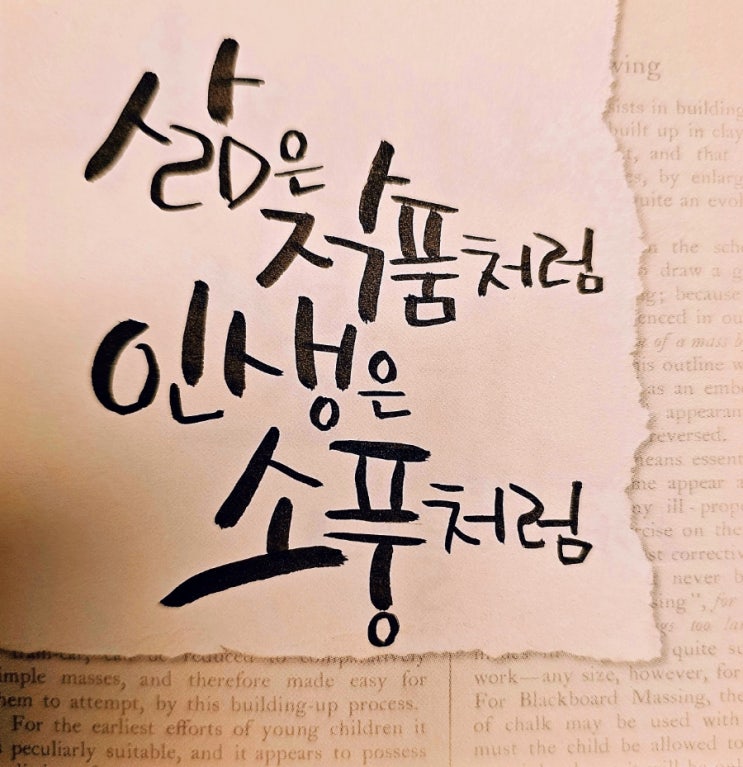 삶은
작품처럼
인생은
소풍처럼
in building
built up in clay
and that
by enlarg
quite an evol
the sch
draw a g
because
in ou
of a mass b
outline w
as an emb
appearan
reversed.
means essent
appear a
ill-prop
on the
correctiv
never b
for
too la
quite su
simple masses, and therefore made easy for
them to attempt, by this building-up process.
For the earliest efforts of young children it
peculiarly suitable, and it appears to possess
work—any size, however, for
For Blackboard Massing, the
of chalk may be used with
must the child be allowed to